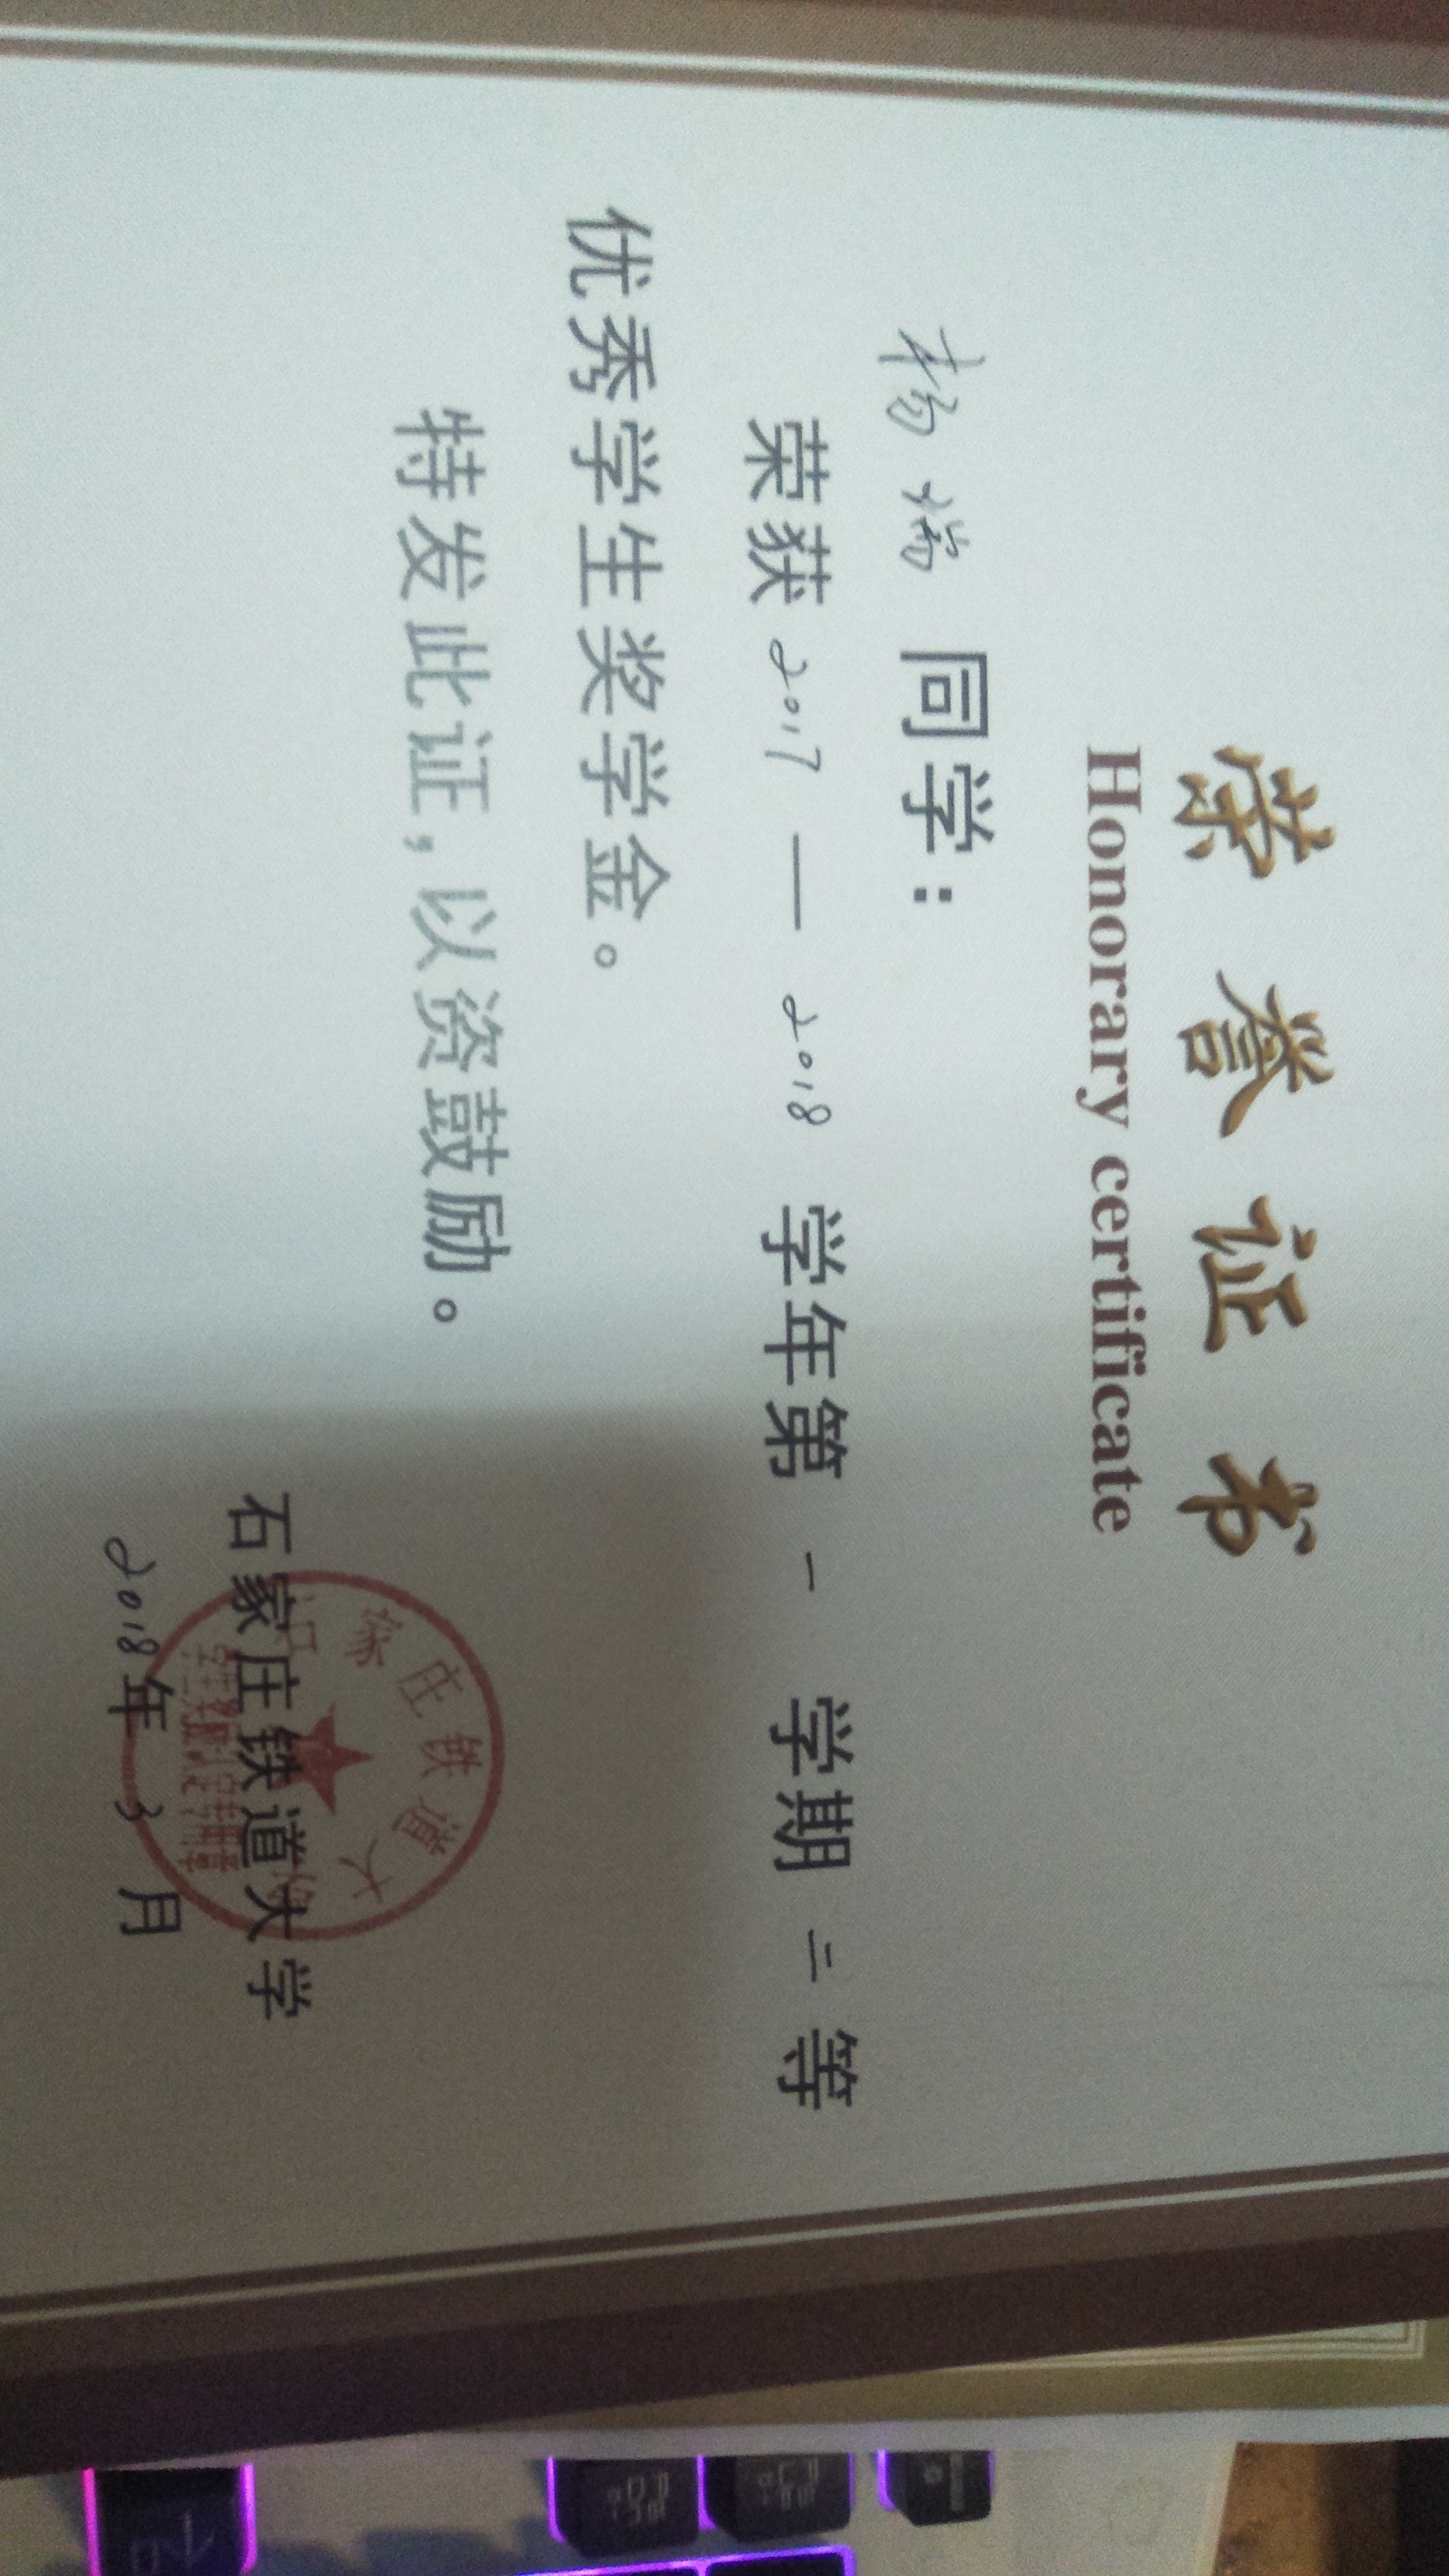 荣誉证书
Honorary certificate
杨瑞 同学：
荣获 2017 — 2018 学年第 一 学期 二 等
优秀学生奖学金。
特发此证，以资鼓励。
石家庄铁道大学
石家庄铁道大学
学生奖励认定专用章
2018 年 3 月